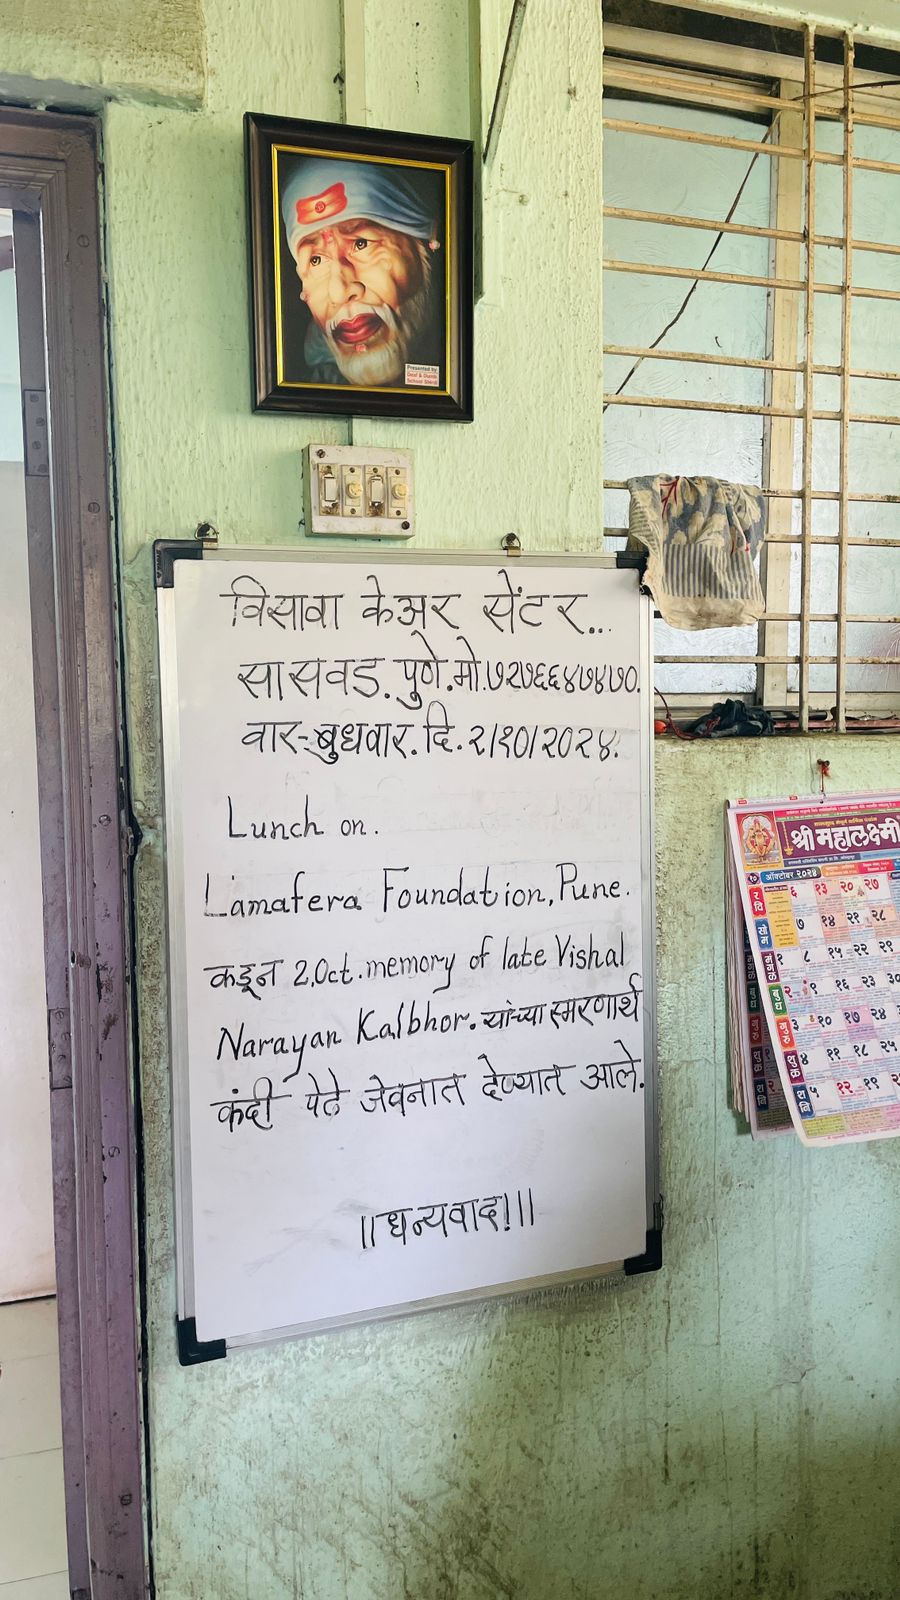 Presented by
Deaf & Dumb
School Shirdi
विसावा केअर सेंटर...
सासवड. पुणे. मो. ७२७६६४७४७०.
वार:- बुधवार. दि. २/१०/२०२४.
Lunch on.
Lamafera Foundation, Pune.
कडून 2.Oct. memory of late Vishal
Narayan Kalbhor. यांच्या स्मरणार्थ
कंदी पेढे जेवनात देण्यात आले.
॥ धन्यवाद! ॥
श्री महालक्ष्मी
१० ऑक्टोबर २०२४
र वि ६ १३ २० २७
सो म ७ १४ २१ २८
मं गळ १ ८ १५ २२ २९
बु ध २ ९ १६ २३ ३०
गु रु ३ १० १७ २४
शु क्र ४ ११ १८ २५
श नि ५ १२ १९